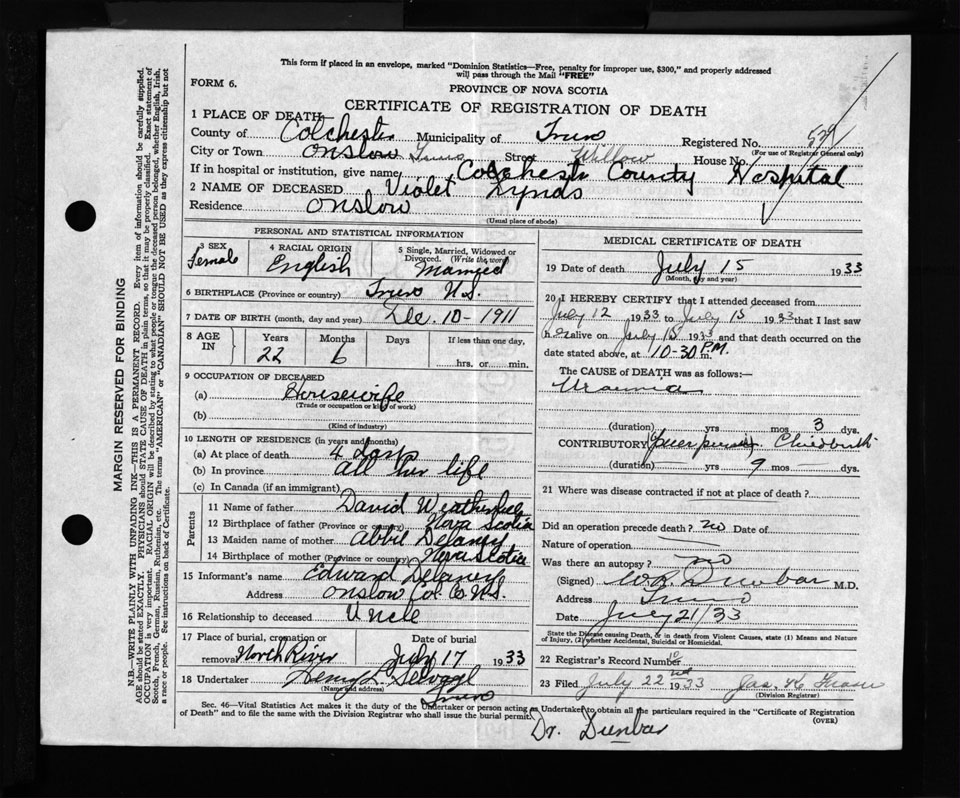 This form if placed in an envelope, marked "Dominion Statistics—Free, penalty for improper use, $300," and properly addressed
will pass through the Mail "FREE"
FORM 6.
PROVINCE OF NOVA SCOTIA
CERTIFICATE OF REGISTRATION OF DEATH
1 PLACE OF DEATH
County of Colchester Municipality of Truro Registered No. 529
(For use of Registrar General only)
City or Town Onslow Truro Street Willow House No.
If in hospital or institution, give name Colchester County Hospital
2 NAME OF DECEASED Violet Lynds
Residence Onslow
(Usual place of abode)
PERSONAL AND STATISTICAL INFORMATION
3 SEX Female
4 RACIAL ORIGIN English
5 Single, Married, Widowed or Divorced. (Write the word) Married
6 BIRTHPLACE (Province or country) Truro N.S.
7 DATE OF BIRTH (month, day and year) Dec. 10 - 1911
8 AGE IN Years 22 Months 6 Days If less than one day, hrs. or min.
9 OCCUPATION OF DECEASED
(a) Housewife
(Trade or occupation or kind of work)
(b)
(Kind of industry)
10 LENGTH OF RESIDENCE (in years and months)
(a) At place of death 4 days
(b) In province all her life
(c) In Canada (if an immigrant)
Parents
11 Name of father David
12 Birthplace of father (Province or country) Nova Scotia
13 Maiden name of mother Abbie Delaney
14 Birthplace of mother (Province or country) Nova Scotia
15 Informant's name Edward Delaney
Address Onslow Col. Co. N.S.
16 Relationship to deceased Uncle
17 Place of burial, cremation or removal North River
Date of burial July 17 1933
18 Undertaker Henry L.
(Name and address) Truro
MEDICAL CERTIFICATE OF DEATH
19 Date of death July 15 1933
(Month, day and year)
20 I HEREBY CERTIFY that I attended deceased from
July 12 1933 to July 15 1933 that I last saw
h er alive on July 15 1933 and that death occurred on the
date stated above, at 10-30 P.M. m.
The CAUSE OF DEATH was as follows:—
Uraemia
(duration) yrs mos 3 dys.
CONTRIBUTORY Childbirth
(duration) yrs 9 mos — dys.
21 Where was disease contracted if not at place of death?
Did an operation precede death? no Date of
Nature of operation
Was there an autopsy? no
(Signed) W.R. Dunbar M.D.
Address Truro
Date July 21/33
State the Disease causing Death, or in death from Violent Causes, state (1) Means and Nature
of Injury, (2) whether Accidental, Suicidal or Homicidal.
22 Registrar's Record Number
23 Filed July 22nd 1933 Jas.
(Division Registrar)
Sec. 46—Vital Statistics Act makes it the duty of the Undertaker or person acting as Undertaker to obtain all the particulars required in the "Certificate of Registration
of Death" and to file the same with the Division Registrar who shall issue the burial permit.
(OVER)
Dr. Dunbar
MARGIN RESERVED FOR BINDING
N.B.—WRITE PLAINLY WITH UNFADING INK—THIS IS A PERMANENT RECORD. Every item of information should be carefully supplied.
AGE should be stated EXACTLY. PHYSICIANS should STATE CAUSE OF DEATH in plain terms, so that it may be properly classified. Exact statement of
OCCUPATION is very important. RACIAL ORIGIN will be described by stating to what people or tongue the deceased person belonged, whether English, Irish,
Scotch, French, German, Russian, Ruthenian, etc. The terms "AMERICAN" or "CANADIAN" SHOULD NOT BE USED as they express citizenship but not
a race or people. See instructions on back of Certificate.